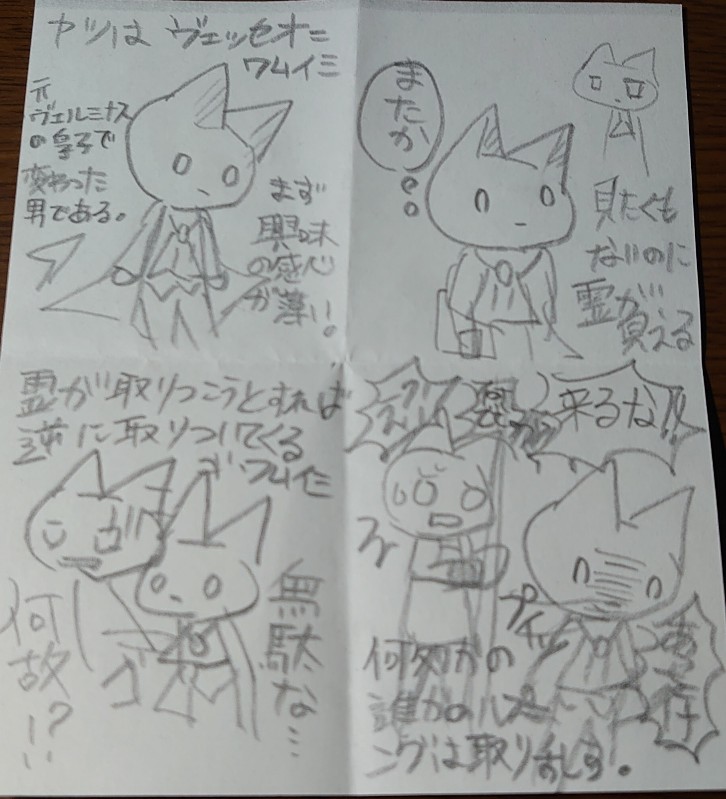 ヤツは ヴェッセオニ
ワムイミ
元
ヴェルミナス
の皇子で
変わった
男である。
まず
興味
の感心
が薄い。
またか
見たくも
ないのに
霊が
見える
霊が取りつこうとすれば
逆に取りつてくる
ワムイミ
無駄な…
何故!?
来るな!!
プイッ
何処かの
誰かの
ングは取り消しす。